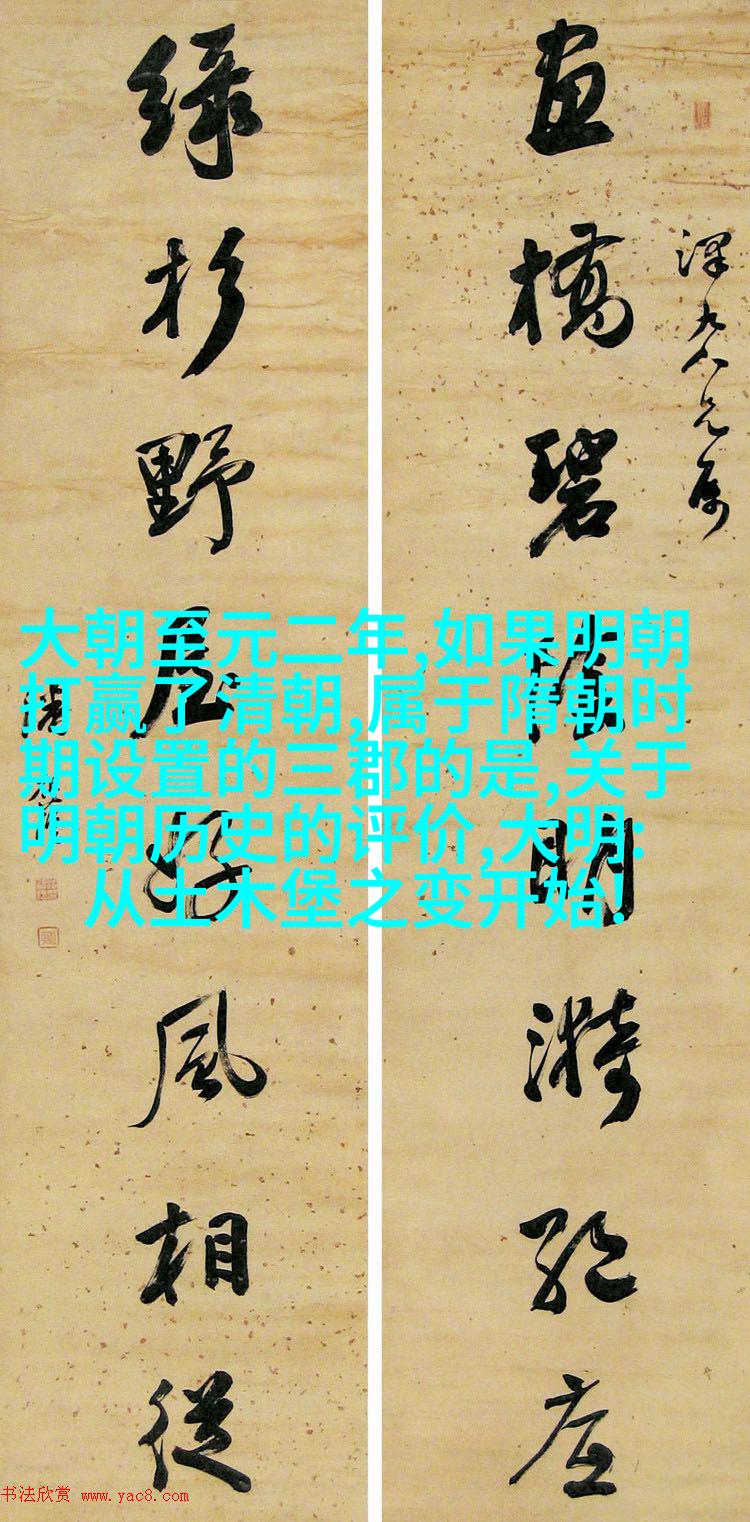 畫橋碧陰明漪絕底
綠杉野屋好風相從
大朝至元二年,如果明朝
打赢了清朝,属于隋朝时
期设置的三郡的是,关于
明朝历史的评价,大明:
从土木堡之变开始!
书法欣赏 www.yac8.com